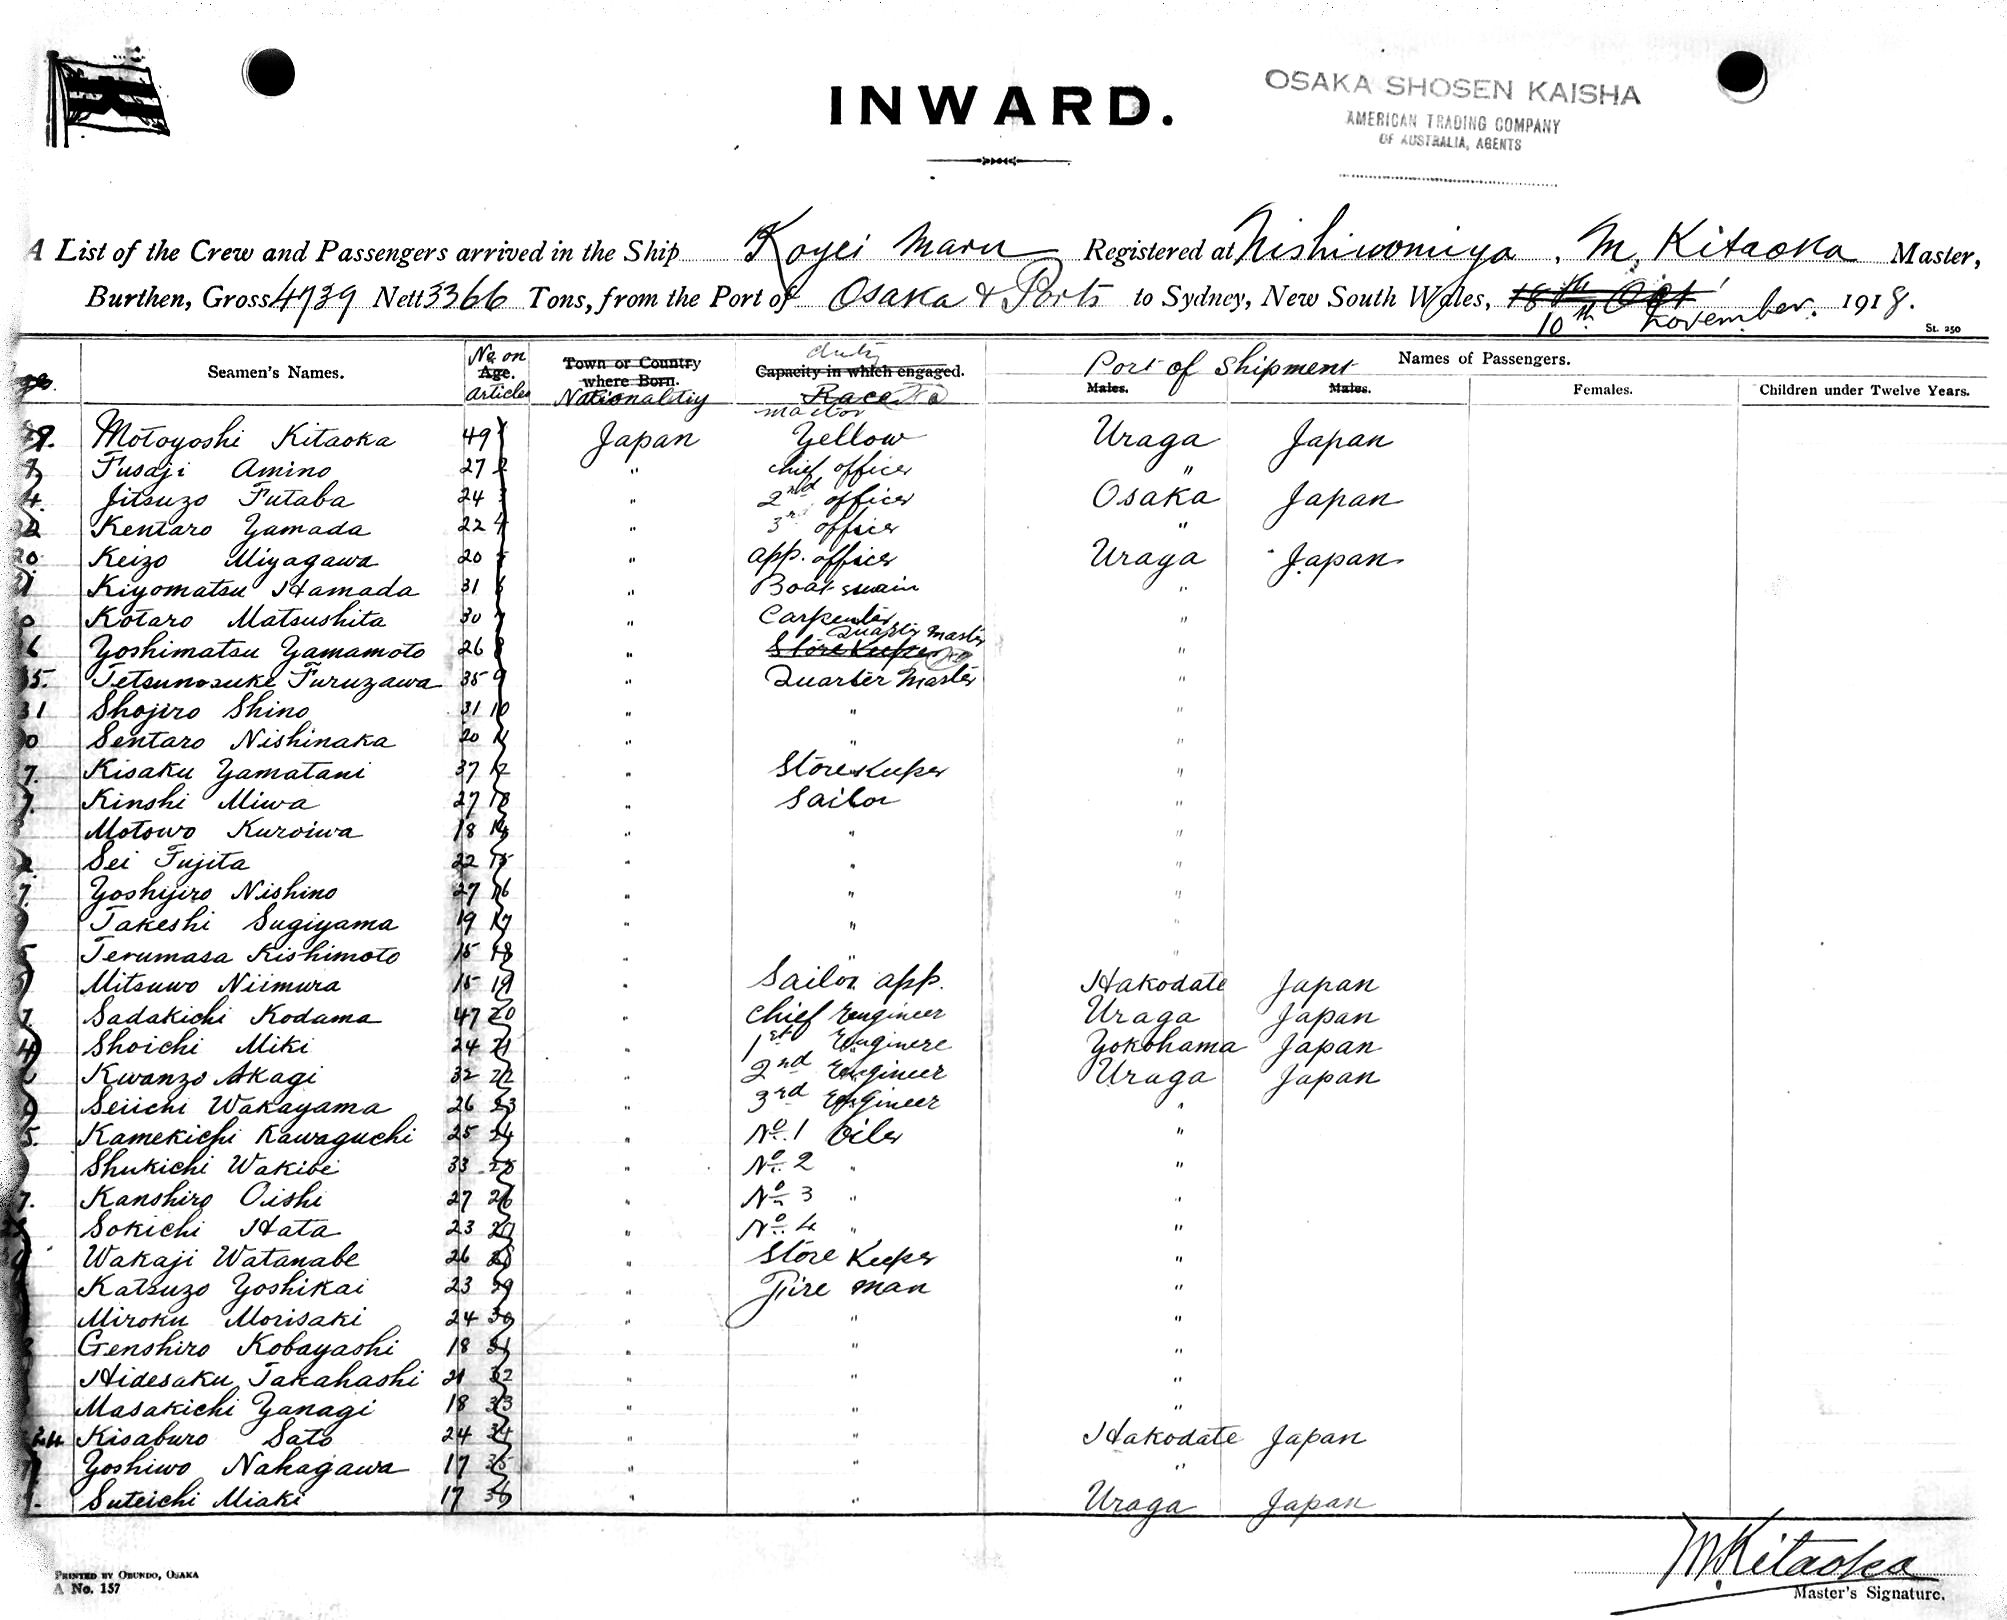 INWARD.
OSAKA SHOSEN KAISHA
AMERICAN TRADING COMPANY
OF AUSTRALIA, AGENTS
A List of the Crew and Passengers arrived in the Ship Koyei Maru Registered at Nishinomiya, M. Kitaoka Master,
Burthen, Gross 4739 Nett 3366 Tons, from the Port of Osaka & Ports to Sydney, New South Wales, 18th Oct 10th November. 1918.
St. 250
Seamen's Names. Age. No. on Articles Town or Country where Born. Nationality Capacity in which engaged. duty Race Port of Shipment Names of Passengers.
Males. Males. Females. Children under Twelve Years.
Master
Motoyoshi Kitaoka 49 1 Japan Yellow Uraga Japan
Fusaji Amino 27 2 " chief officer "
Jitsuzo Futaba 24 3 " 2nd officer Osaka Japan
Kentaro Yamada 22 4 " 3rd officer "
Keizo Miyagawa 20 5 " app. officer Uraga Japan
Kiyomatsu Hamada 31 6 " Boatswain "
Kotaro Matsushita 30 7 " Carpenter "
Yoshimatsu Yamamoto 26 8 " Store Keeper Quarter Master "
Tetsunosuke Furuzawa 35 9 " Quarter Master "
Shojiro Shino 31 10 " " "
Sentaro Nishinaka 20 11 " " "
Kisaku Yamatani 37 12 " Storekeeper "
Kinshi Miwa 27 13 " Sailor "
Motowo Kuroiwa 18 14 " " "
Sei Fujita 22 15 " " "
Yoshijiro Nishino 27 16 " " "
Takeshi Sugiyama 19 17 " " "
Terumasa Kishimoto 15 18 " " "
Mitsuwo Niimura 15 19 " Sailor app. Hakodate Japan
Sadakichi Kodama 47 20 " Chief Engineer Uraga Japan
Shoichi Miki 24 21 " 1st Enginere Yokohama Japan
Kwanzo Akagi 32 22 " 2nd Engineer Uraga Japan
Seiichi Wakayama 26 23 " 3rd Engineer "
Kamekichi Kawaguchi 25 24 " No. 1 Oiler "
Shukichi Wakibe 33 25 " No. 2 " "
Kanshiro Oishi 27 26 " No. 3 " "
Sokichi Hata 23 27 " No. 4 " "
Wakaji Watanabe 26 28 " Store Keeper "
Katsuzo Yoshikai 23 29 " Fire man "
Miroku Morisaki 24 30 " " "
Genshiro Kobayashi 18 31 " " "
Hidesaku Takahashi 21 32 " " "
Masakichi Yanagi 18 33 " " "
Kisaburo Sato 24 34 " " Hakodate Japan
Yoshiwo Nakagawa 17 35 " " "
Suteichi Miaki 17 36 " " Uraga Japan
M. Kitaoka
Master's Signature.
PRINTED BY OBUNDO, OSAKA
A No. 157